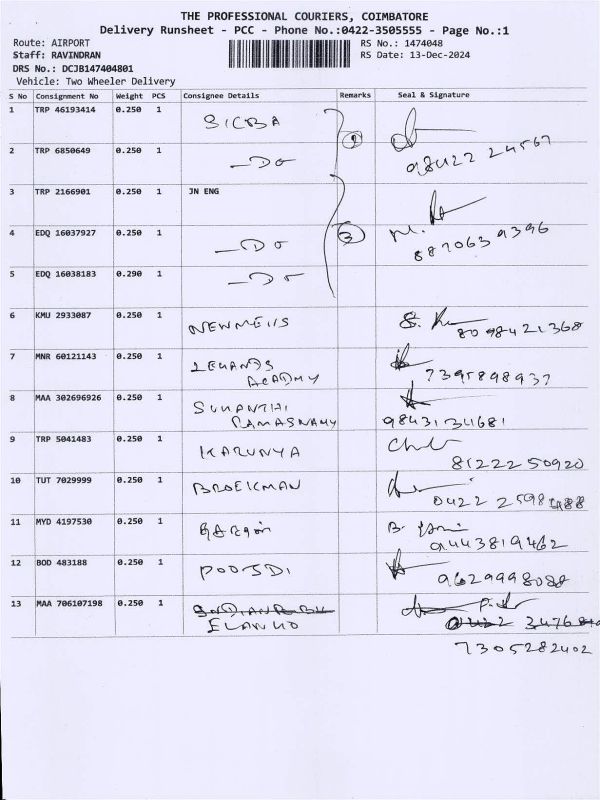 THE PROFESSIONAL COURIERS, COIMBATORE
Delivery Runsheet - PCC - Phone No.:0422-3505555 - Page No.:1
Route: AIRPORT
RS No.: 1474048
Staff: RAVINDRAN
RS Date: 13-Dec-2024
DRS No.: DCJB147404801
Vehicle: Two Wheeler Delivery
S No Consignment No Weight PCS Consignee Details Remarks Seal & Signature
1 TRP 46193414 0.250 1 SICBA
2 TRP 6850649 0.250 1 -Do 2 98422 24567
3 TRP 2166901 0.250 1 JN ENG
4 EDQ 16037927 0.250 1 -Do 3 887063 9396
5 EDQ 16038183 0.290 1 -Do
6 KMU 2933087 0.250 1 8098421368
7 MNR 60121143 0.250 1 7395898937
ACADMY
8 MAA 302696926 0.250 1 SUKANTHI
RAMASNAMY 9843134681
9 TRP 5041483 0.250 1 KARUNYA
81222 50920
10 TUT 7029999 0.250 1 BROEKMAN 0422
11 MYD 4197530 0.250 1
9443819462
12 BOD 483188 0.250 1 POOJDI 9629998088
13 MAA 706107198 0.250 1
ELANKO
7305282402